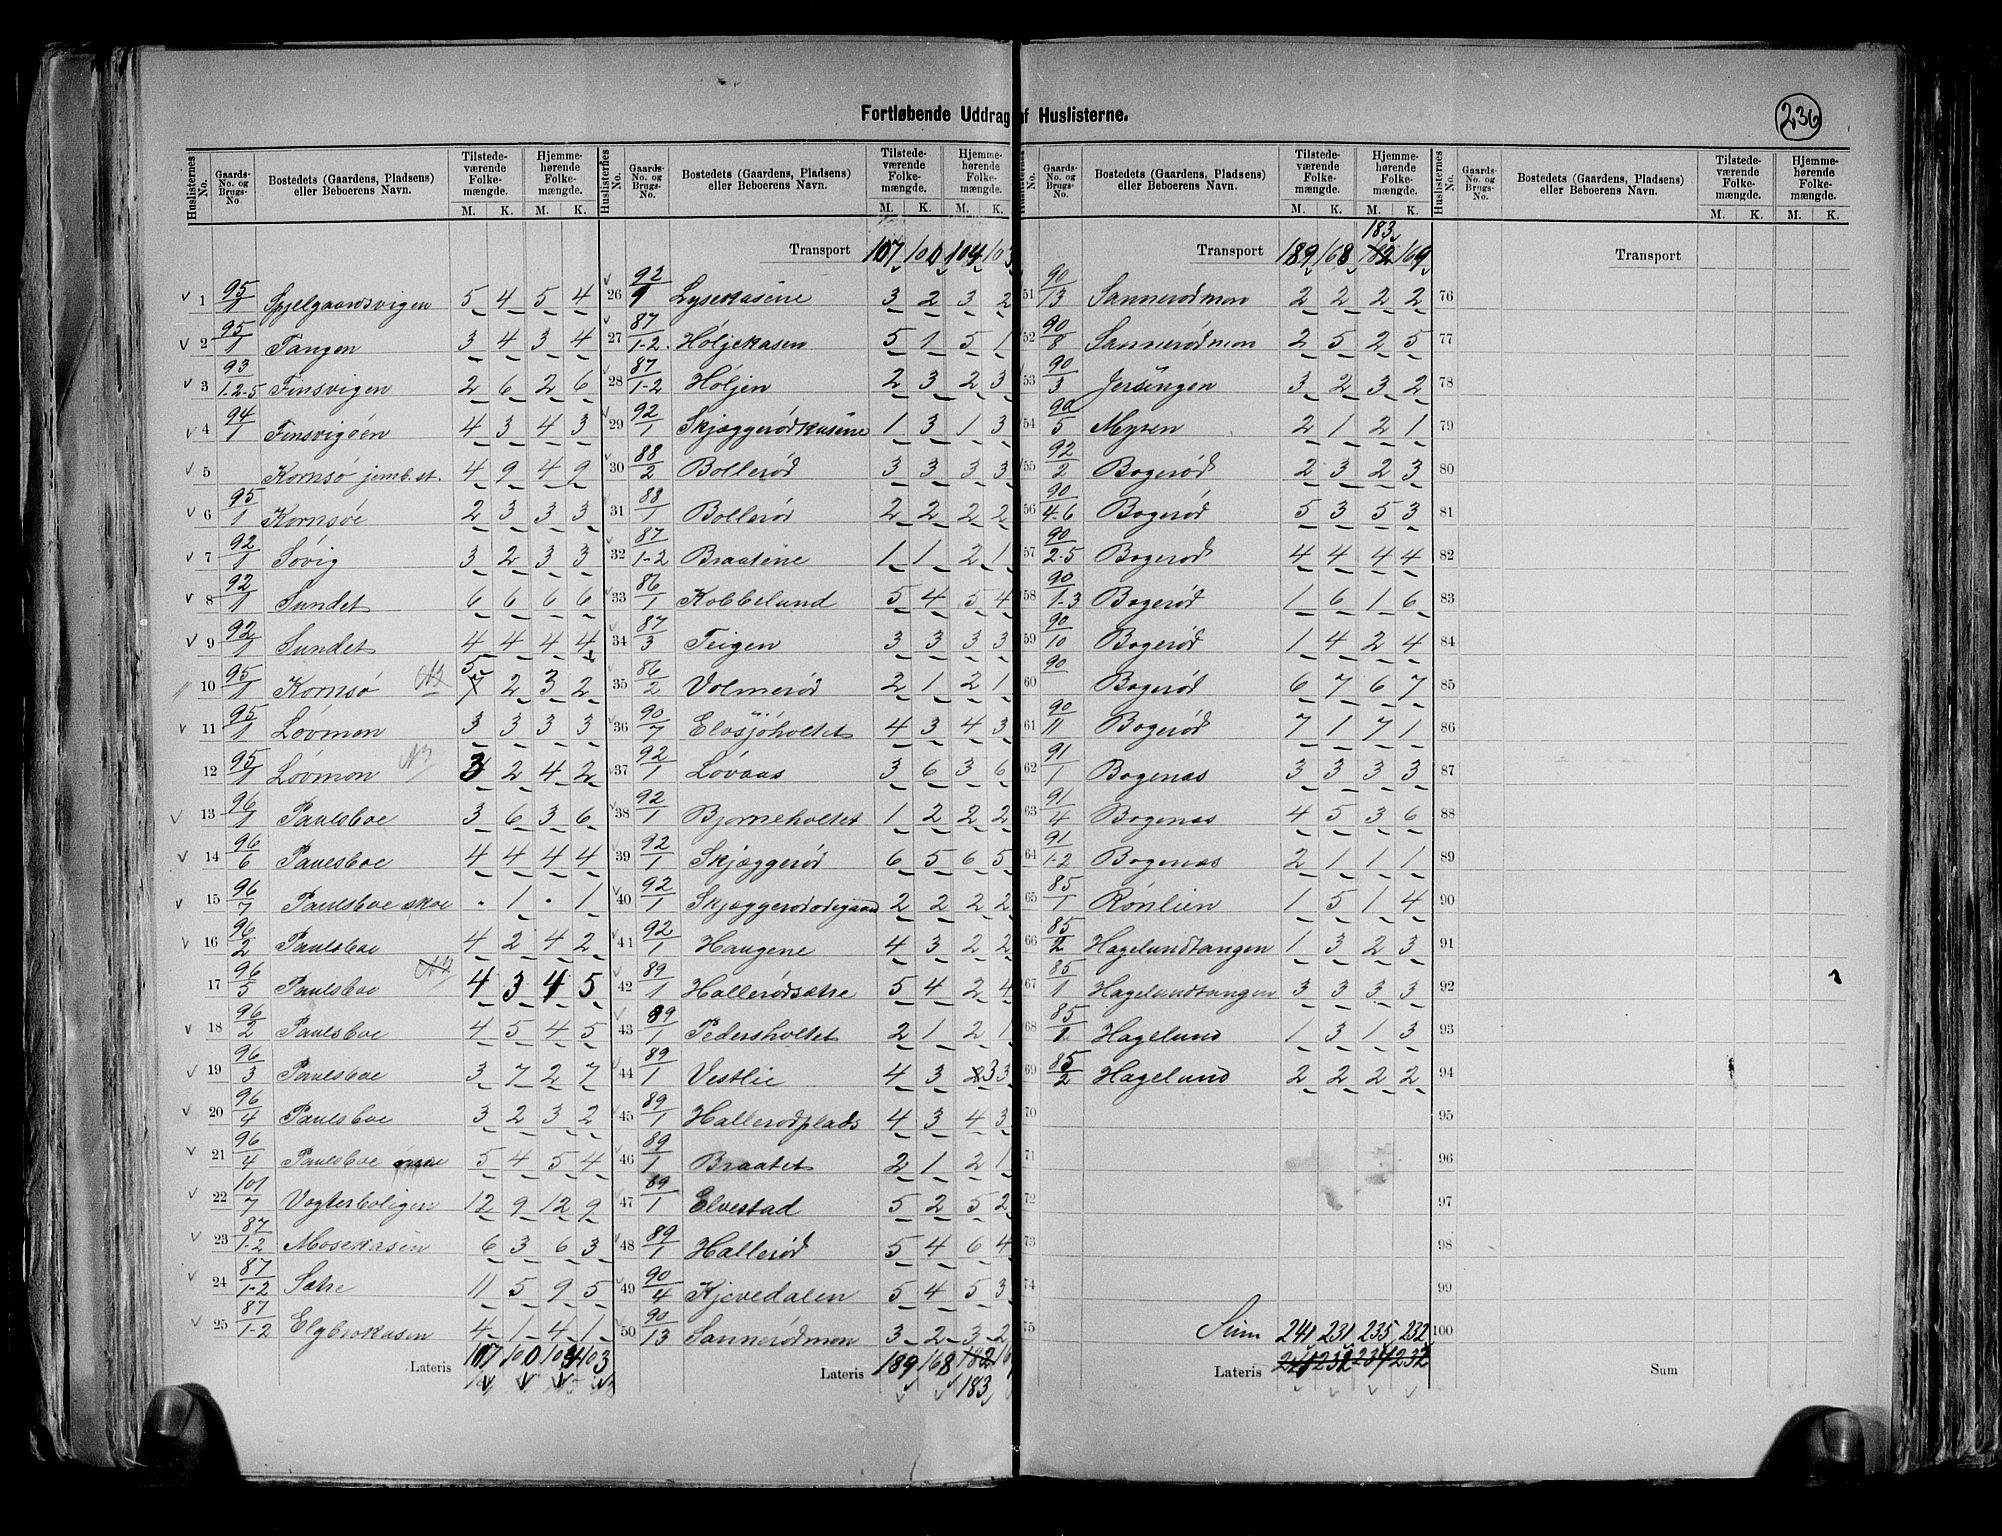 Fortløbende Uddrag af Huslisterne.
236
Huslisternes No. Gaards-No. og Brugs-No Bostedets (Gaardens, Pladsens) eller Beboerens Navn. Tilstedeværende Folkemængde. M. K. Hjemmehørende Folkemængde. M. K.
1 95/1 Spjelgaardsvigen 5 4 5 4
2 95/1 Tangen 3 4 3 4
3 93/1-2-5 Finsvigen 2 6 2 6
4 94/1 Finsvigøen 4 3 4 3
5 Kornsø jernb.st. 4 9 4 9
6 95/1 Kornsøe 2 3 3 3
7 92/1 Søvig 3 2 3 3
8 92/1 Sundet 6 6 6 6
9 92/1 Sundet 4 4 4 4
10 95/1 Kornsø 5 2 3 2
11 95/1 Løvmon 3 3 3 3
12 95/1 Løvmon 3 2 4 2
13 96/1 Paulsboe 3 6 3 6
14 96/6 Paulsboe 4 4 4 4
15 96/7 Paulsboe skoe · 1 · 1
16 96/2 Paulsboe 4 2 4 2
17 96/5 Paulsboe 4 3 4 5
18 96/2 Paulsboe 4 5 4 5
19 96/3 Paulsboe 3 7 2 7
20 96/4 Paulsboe 3 2 3 2
21 96/4 Paulsboe 5 4 5 4
22 101/7 Vogterboligen 12 9 12 9
23 87/1-2 Mosekasen 6 3 6 3
24 87/1-2 Sætre 11 5 9 5
25 87/1-2 Elgbrokasen 4 1 4 1
Lateris 107 100 104 103
Huslisternes No. Gaards-No. og Brugs-No. Bostedets (Gaardens, Pladsens) eller Beboerens Navn. Tilstedeværende Folkemængde. M. K. Hjemmehørende Folkemængde. M. K.
Transport 107 100 104 103
26 92/1 Lysekasene 3 2 3 2
27 87/1-2. Høljekasen 5 1 5 1
28 87/1-2 Høljen 2 3 2 3
29 92/1 Skjæggerødkasene 1 3 1 3
30 88/2 Bollerød 3 3 3 3
31 88/1 Bollerød 2 2 2 2
32 87/1-2 Braatene 1 1 2 1
33 86/1 Kobbelund 5 4 5 4
34 87/3 Teigen 3 3 3 3
35 86/2 Volmerød 2 1 2 1
36 90/7 Elvsjøholtet 4 3 4 3
37 92/1 Løvaas 3 6 3 6
38 92/1 Bjørneholtet 1 2 2 2
39 92/1 Skjæggerød 6 5 6 5
40 92/1 Skjæggerødødegaard 2 2 2 2
41 92/1 Haugene 4 3 2 2
42 89/1 Hallerødsætre 5 4 2 4
43 89/1 Pedersholtet 2 1 2 1
44 89/1 Vestlie 4 3 3 3
45 89/1 Hallerødplads 4 3 4 3
46 89/1 Braatet 2 1 2 1
47 89/1 Elvestad 5 2 5 2
48 89/1 Hallerød 5 4 6 4
49 90/4 Kjevedalen 5 4 5 3
50 90/13 Sannerødmon 3 2 3 2
Lateris 189 168 182 16
183
Huslisternes No. Gaards-No. og Brugs-No. Bostedets (Gaardens, Pladsens) eller Beboerens Navn. Tilstedeværende Folkemængde. M. K. Hjemmehørende Folkemængde. M. K.
183
Transport 189 168 182 169
51 90/13 Sannerødmon 2 2 2 2
52 90/8 Sannerødmon 2 5 2 5
53 90/3 Jersingen 3 2 3 2
54 90/5 Myren 2 1 2 1
55 92/2 Bogerød 2 3 2 3
56 90/4-6 Bogerød 5 3 5 3
57 90/2-5 Bogerød 4 4 4 4
58 90/1-3 Bogerød 1 6 1 6
59 90/10 Bogerød 1 4 2 4
60 90 Bogerød 6 7 6 7
61 90/11 Bogerød 7 1 7 1
62 91/1 Bogenæs 3 3 3 3
63 91/4 Bogenæs 4 5 3 6
64 91/1-2 Bogenæs 2 1 1 1
65 85/1 Rønlien 1 5 1 4
66 85/2 Hagelundtangen 1 3 2 3
67 85/1 Hagelundtangen 3 3 3 3
68 85/2 Hagelund 1 3 1 3
69 85/2 Hagelund 2 2 2 2
70
71
72
73
74
75 Sum 241 231 235 232
Lateris 241 232 234 232
Huslisternes No. Gaards-No. og Brugs-No. Bostedets (Gaardens, Pladsens) eller Beboerens Navn. Tilstedeværende Folkemængde. M. K. Hjemmehørende Folkemængde. M. K.
Transport
76
77
78
79
80
81
82
83
84
85
86
87
88
89
90
91
92
93
94
95
96
97
98
99
100
Sum